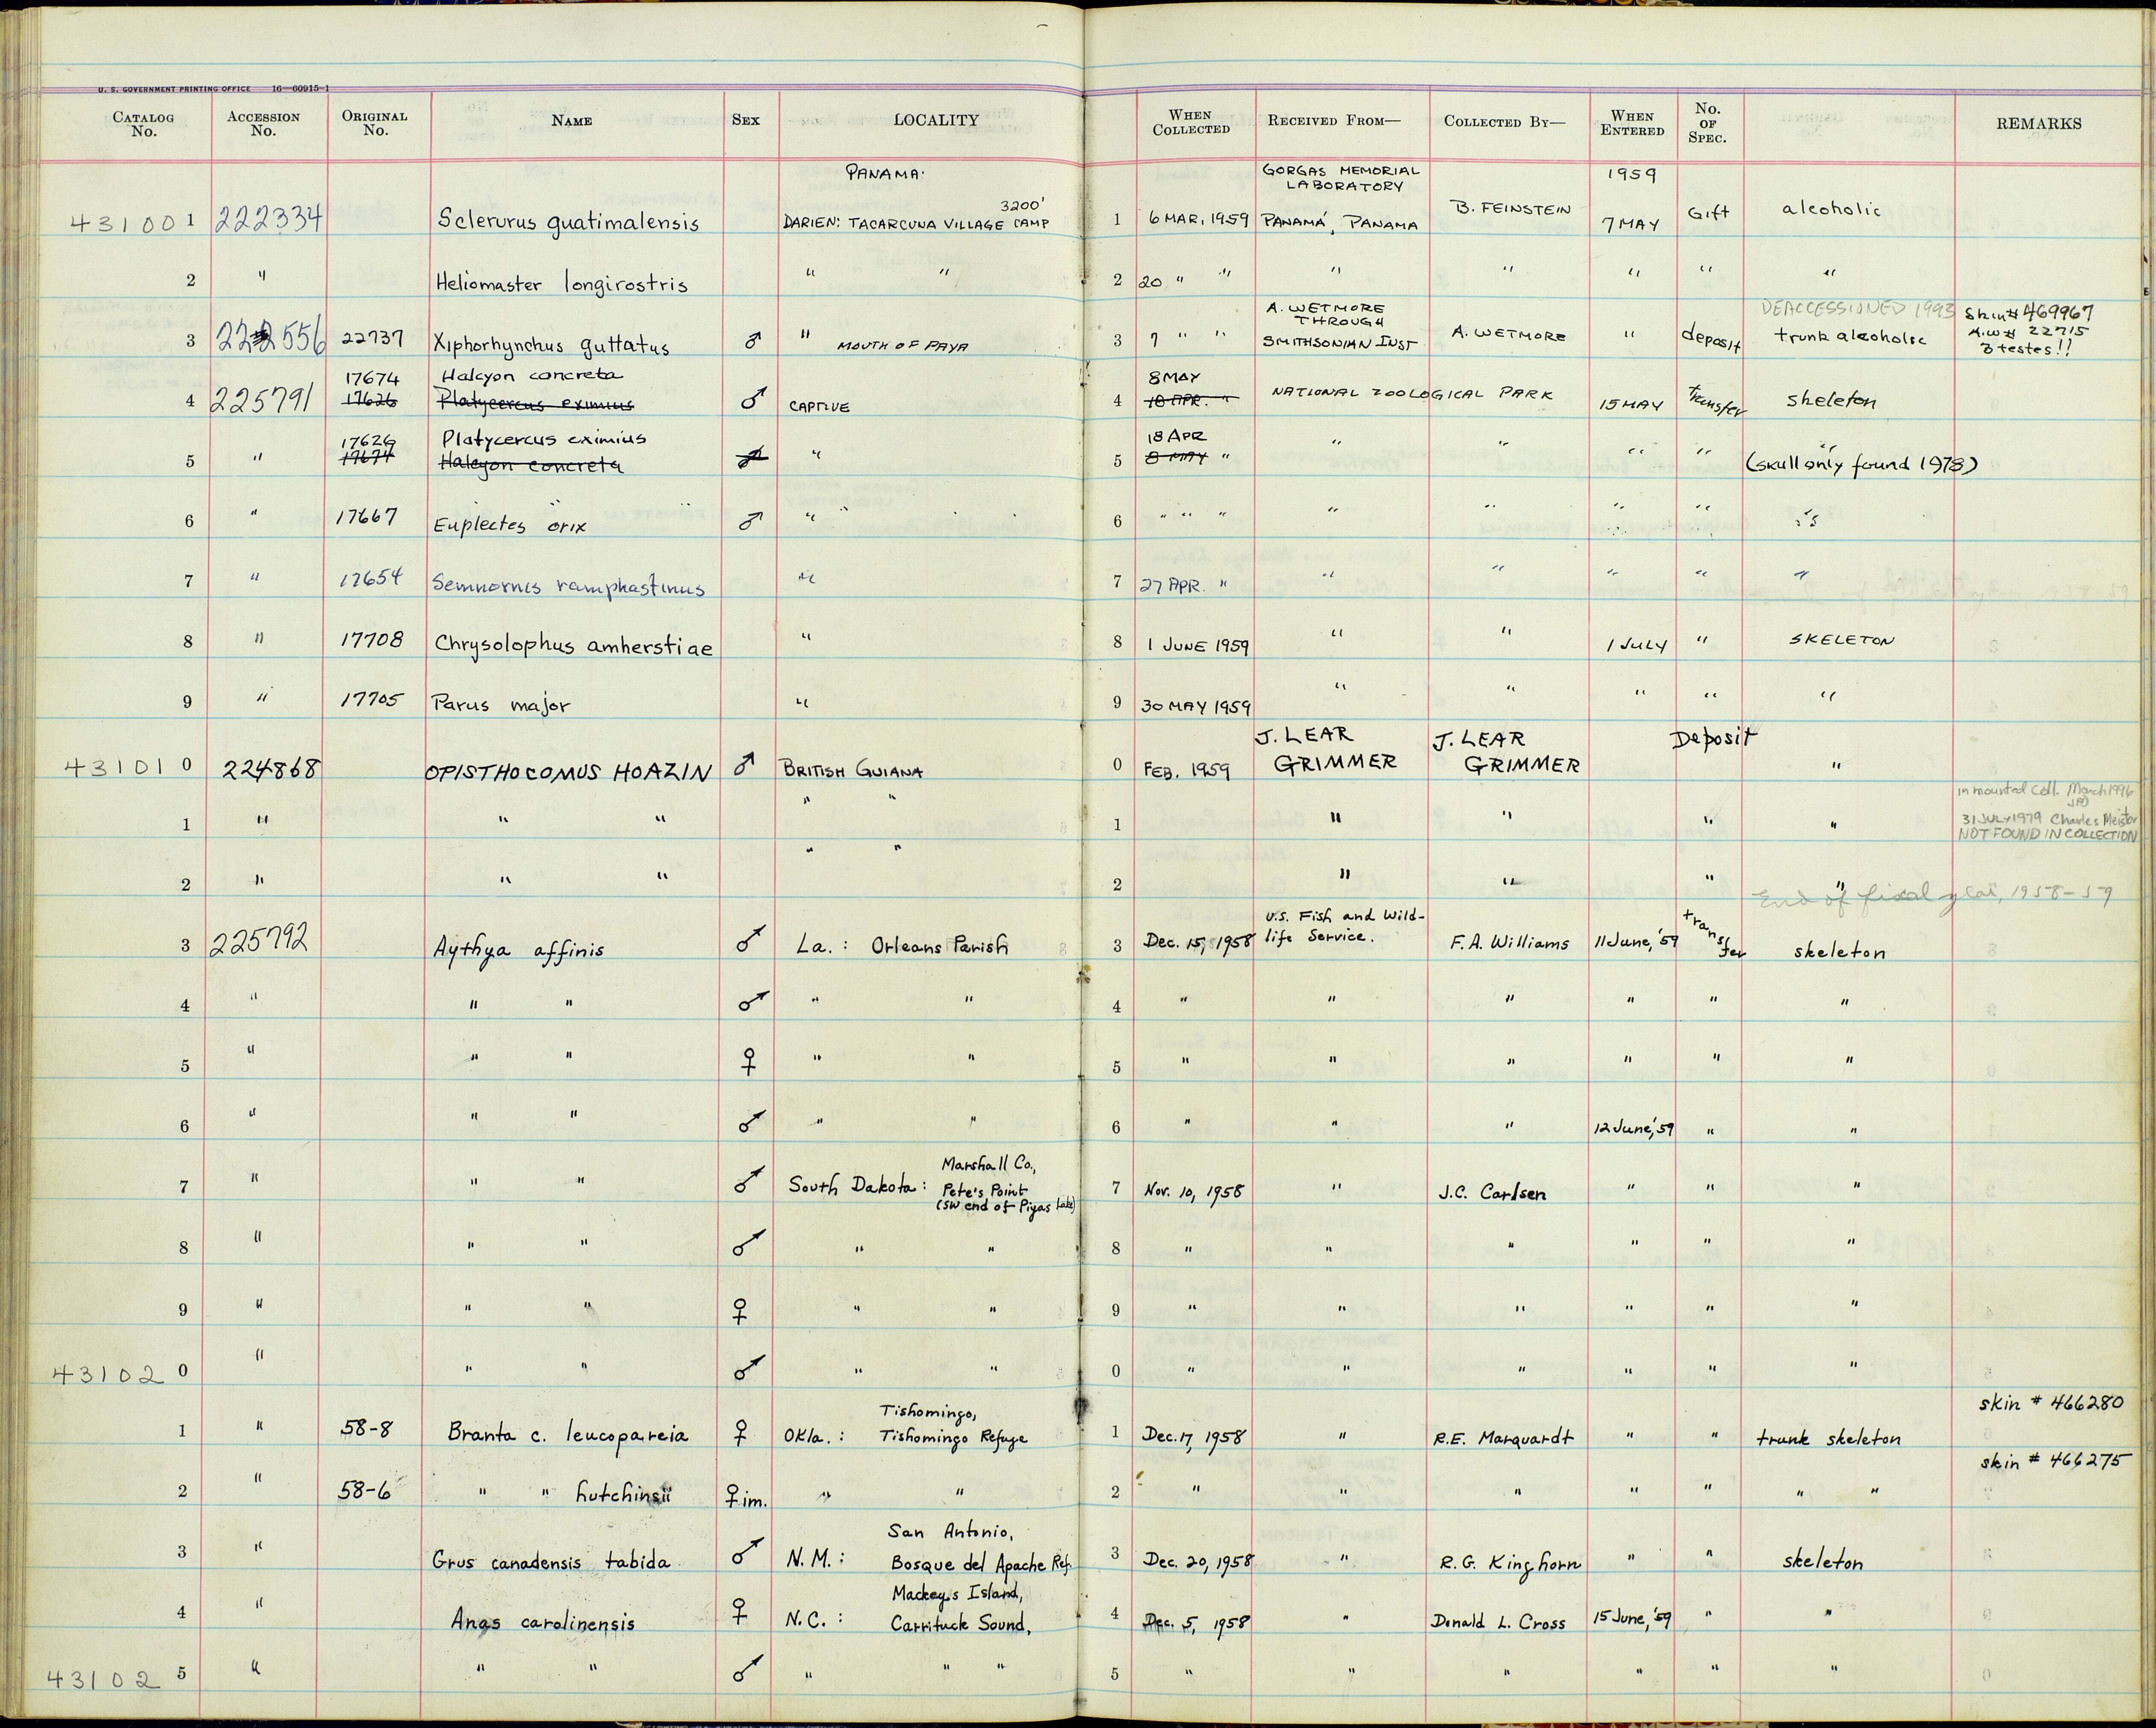 U. S. GOVERNMENT PRINTING OFFICE 16—60915-1
CATALOG No. ACCESSION No. ORIGINAL No. NAME SEX LOCALITY WHEN COLLECTED RECEIVED FROM— COLLECTED BY— WHEN ENTERED No. OF SPEC. REMARKS
PANAMA: GORGAS MEMORIAL LABORATORY 1959
431001 222334 Sclerurus guatimalensis DARIEN: TACARCUNA VILLAGE CAMP 3200' 1 6 MAR, 1959 PANAMÁ, PANAMA B. FEINSTEIN 7 MAY Gift alcoholic
2 " Heliomaster longirostris " " 2 20 " " " " " " "
DEACCESSIONED 1993 Skin# 469967
3 222556 22737 Xiphorhynchus guttatus ♂ " MOUTH OF PAYA 3 7 " " A. WETMORE THROUGH SMITHSONIAN INST A. WETMORE " deposit trunk alcoholic A.W# 22715 3 testes!!
17674 Halcyon concreta 8 MAY
4 225791 17626 Platycercus eximius ♂ CAPTIVE 4 18 APR. " NATIONAL ZOOLOGICAL PARK 15 MAY Transfer skeleton
17626 Platycercus eximius 18 APR
5 " 17674 Halcyon concreta ♂ " 5 8 MAY " " " " " " (skull only found 1978)
6 " 17667 Euplectes orix ♂ " 6 " " " " " " " "
7 " 17654 Semnornis ramphastinus " 7 27 APR. " " " " " "
8 " 17708 Chrysolophus amherstiae " 8 1 JUNE 1959 " " 1 JULY " SKELETON
9 " 17705 Parus major " 9 30 MAY 1959 " " " " "
431010 224868 OPISTHOCOMUS HOAZIN ♂ BRITISH GUIANA 0 FEB. 1959 J. LEAR GRIMMER J. LEAR GRIMMER Deposit "
in mounted Coll. March 1996 JPD
1 " " " " " 1 " " " " 31 JULY 1979 Charles Meister
NOT FOUND IN COLLECTION
2 " " " " " 2 " " " "
End of fiscal year, 1958-59
3 225792 Aythya affinis ♂ La.: Orleans Parish 3 Dec. 15, 1958 U.S. Fish and Wild-life Service. F.A. Williams 11 June, '59 transfer skeleton
4 " " " ♂ " " 4 " " " " " "
5 " " " ♀ " " 5 " " " " " "
6 " " " ♂ " " 6 " " " 12 June, '59 " "
7 " " " ♂ South Dakota: Marshall Co., Pete's Point (SW end of Piyas Lake) 7 Nov. 10, 1958 " J.C. Carlsen " " "
8 " " " ♂ " " 8 " " " " " "
9 " " " ♀ " " 9 " " " " " "
431020 " " " ♂ " " 0 " " " " " "
skin # 466280
1 " 58-8 Branta c. leucopareia ♀ Okla.: Tishomingo, Tishomingo Refuge 1 Dec. 17, 1958 " R.E. Marquardt " " trunk skeleton
skin # 466275
2 " 58-6 " " hutchinsii ♀ im. " " 2 " " " " " " "
3 " Grus canadensis tabida ♂ N.M.: San Antonio, Bosque del Apache Ref. 3 Dec. 20, 1958 " R.G. Kinghorn " " skeleton
4 " Anas carolinensis ♀ N.C.: Mackeys Island, Currituck Sound, 4 Dec. 5, 1958 " Donald L. Cross 15 June, '59 " "
431025 " " " ♂ " " " 5 " " " " " "